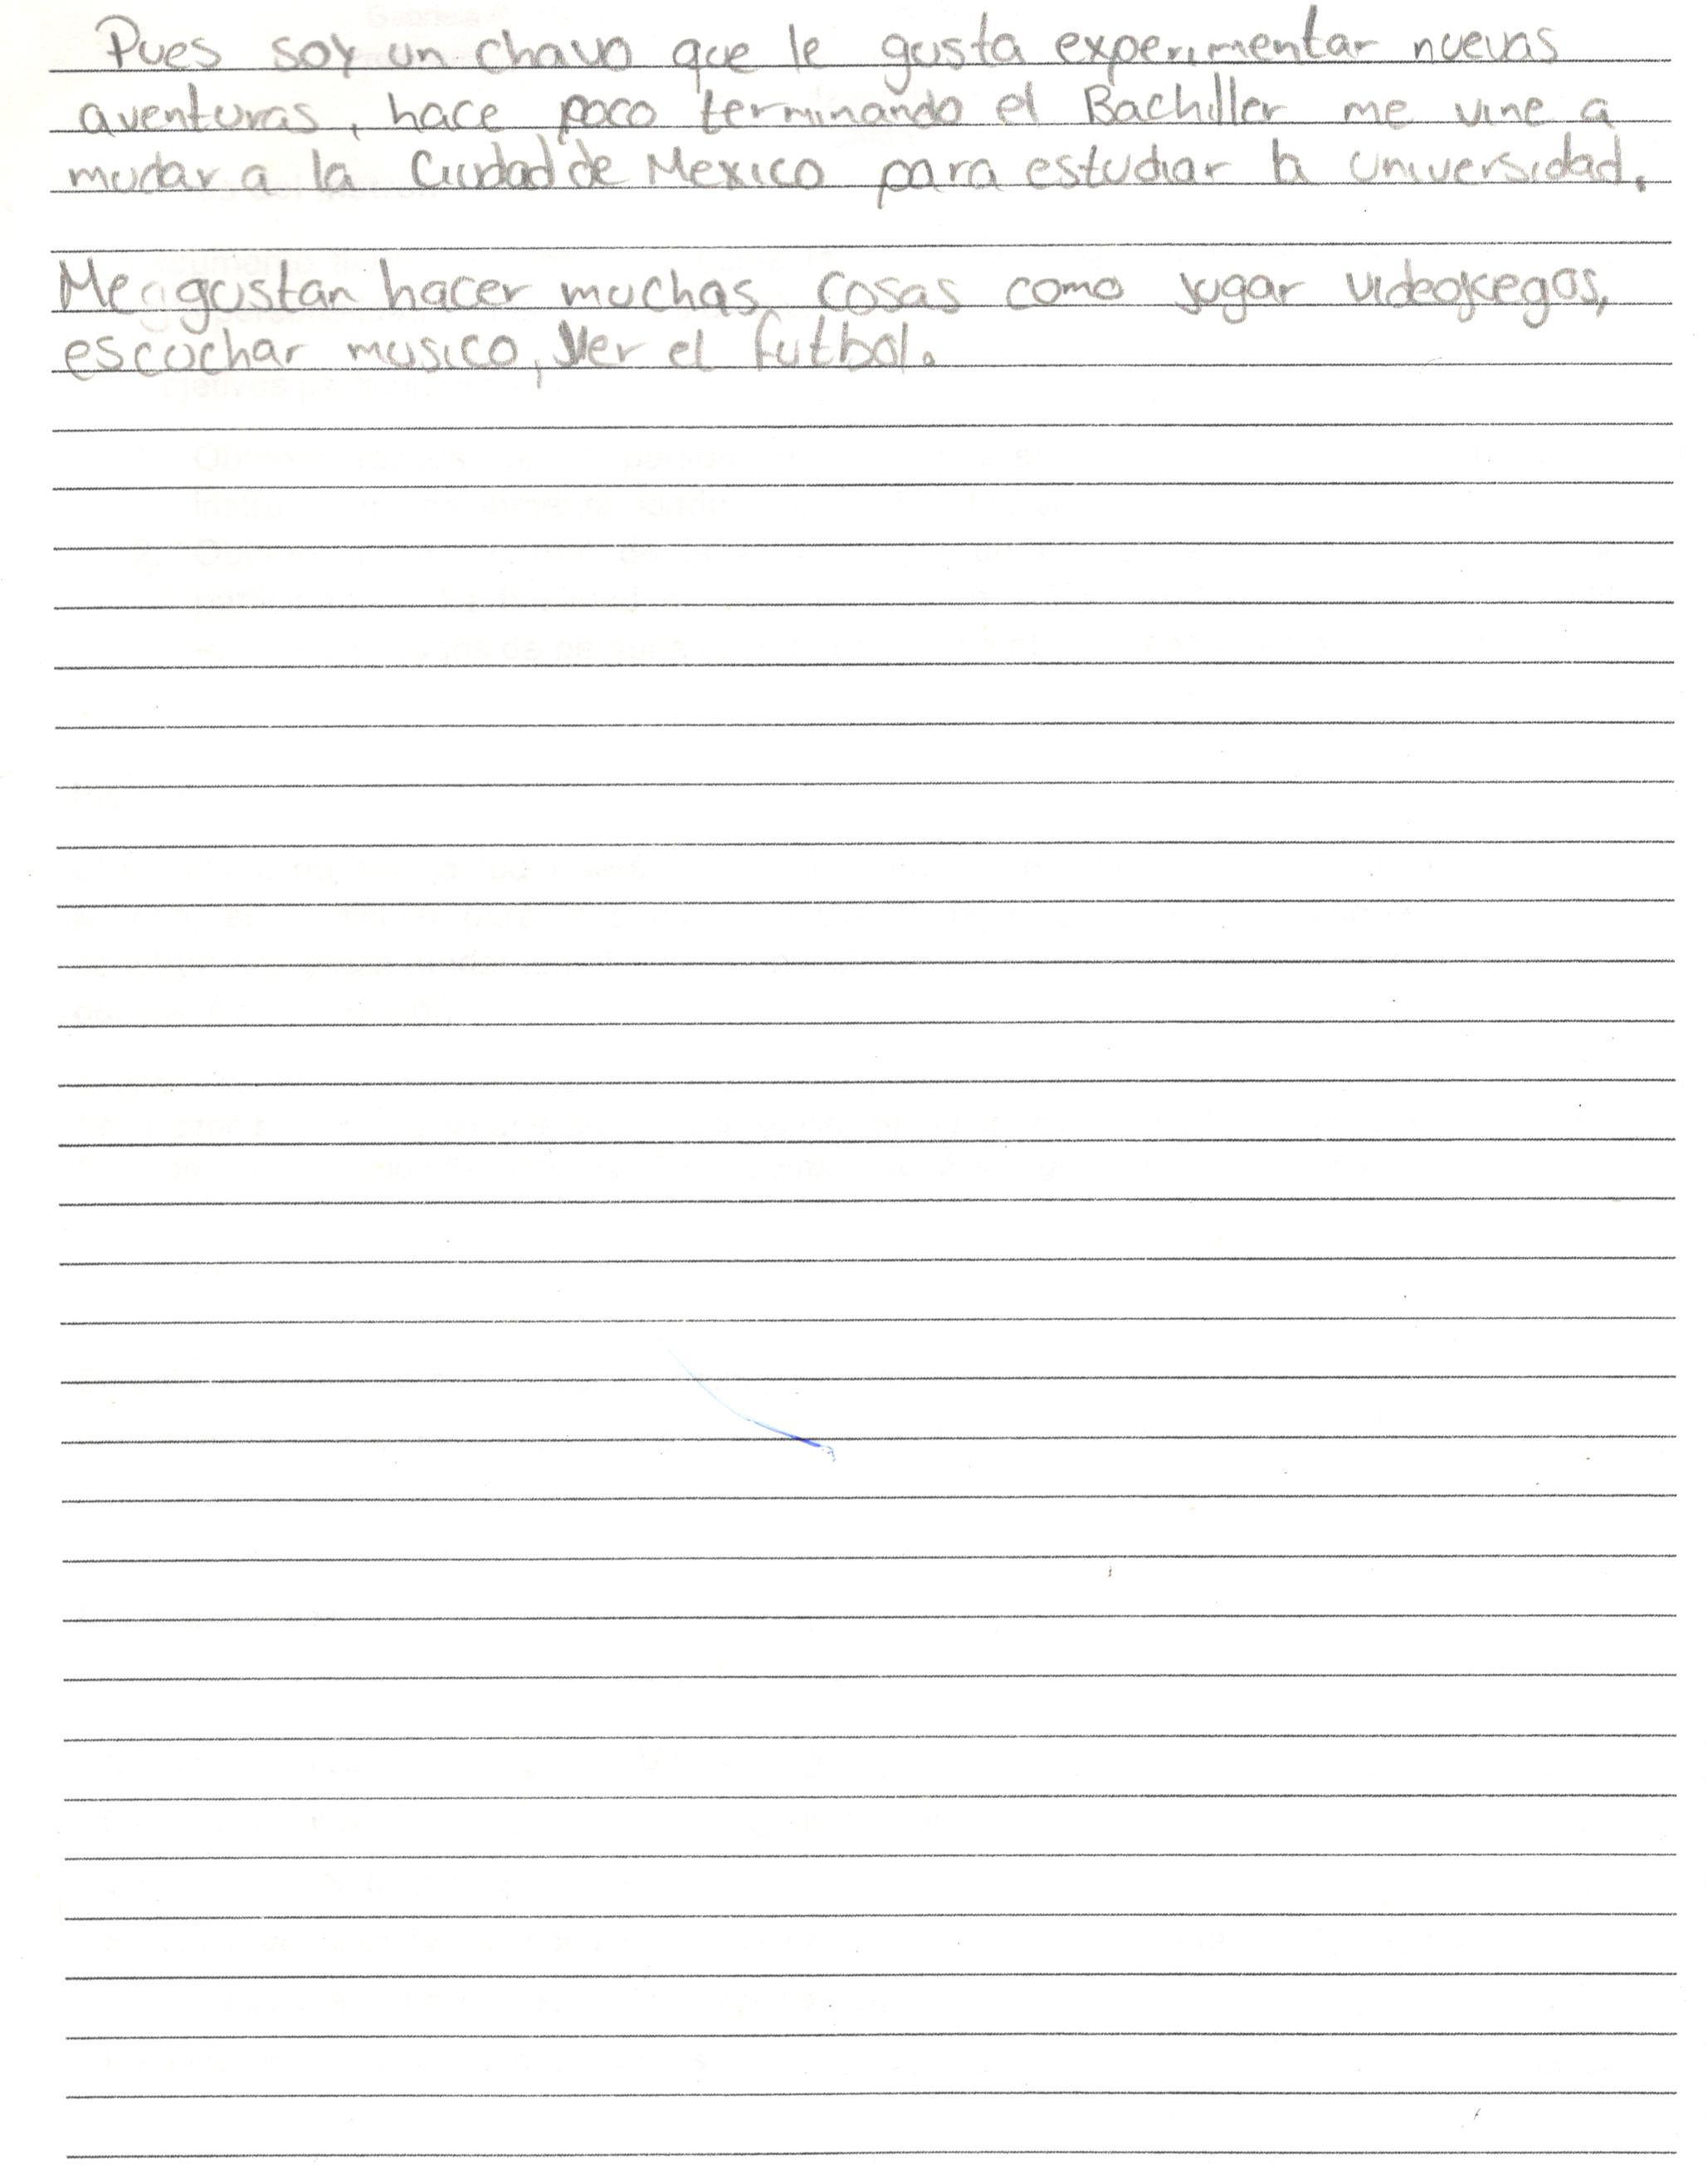 Pues soy un chavo que le gusta experimentar nuevas
aventuras, hace poco terminando el Bachiller me vine a
mudar a la Ciudad de Mexico para estudiar la universidad.
Me gustan hacer muchas cosas como jugar videojuegos,
escuchar musica, Ver el futbol.